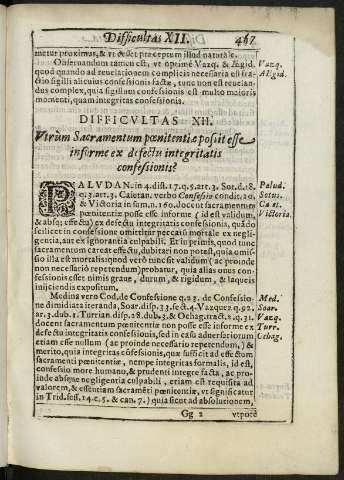 Difficultas XII. 467
metur proximus, & vt esset præceptum illud naturale.
Obseruandum tamen est, vt optimè Vazq. & Ægid. Vazq.
quod quando ad reuelationem complicis necessaria est fra- Ægid.
ctio sigilli alicuius confessionis factæ, tunc non est reuelan-
dus complex, quia sigillum confessionis est multo maioris
momenti, quam integritas confessionis.
DIFFICVLTAS XII.
Vtrùm Sacramentum pœnitentiæ possit esse
informe ex defectu integritatis
confessionis?
PALVDAN. in 4. dist. 17. q. 5. art. 3. Sot. d. 18. Palud.
q. 3. art. 3. Caietan. verbo Confessio condit. 20. Sotus.
& Victoria in sum. n. 160. docent sacramentum Caiet.
pœnitentiæ posse esse informe (id est validum, Victoria.
& absq; effectu) ex defectu integritatis confessionis, quãdo
scilicet in confessione omittitur peccatũ mortale ex negli-
gentia, aut ex ignorantia culpabili. Et in primis, quod tunc
sacramentum careat effectu, dubitari non potest, quia omis-
sio illa est mortalis: quod verò tunc sit validum (ac proinde
non necessariò repetendum) probatur, quia alias onus con-
fessionis esset nimis graue, durum, & rigidum, & laqueis
inijciendis expositum.
Medina verò Cod. de Confessione q. 23. de Confessio- Med.
ne dimidiata iteranda, Soar. disp. 33. sect. 4. Vazquez q. 92. Soar.
ar. 3. dub. 1. Turrian. disp. 28. dub. 3. & Ochag. tract. 2. q. 31. Vazq.
docent sacramentum pœnitentiæ non posse esse informe ex Turr.
defectu integritatis confessionis, sed in casu aduersariorum Ochag.
etiam esse nullum (ac proinde necessario repetendum,) &
merito, quia integritas cõfessionis, quæ sufficit ad effectum
sacramenti pœnitentiæ, nempe integritas formalis, id est,
confessio more humano, & prudenti integre facta, ac pro-
inde absque negligentia culpabili, etiam est requisita ad
valorem, & essentiam sacramẽti pœnitentiæ, vt significatur
in Trid. sess. 14. c. 5. & can. 7.) quia sicut ad absolutionem,
Gg 2 vtpote